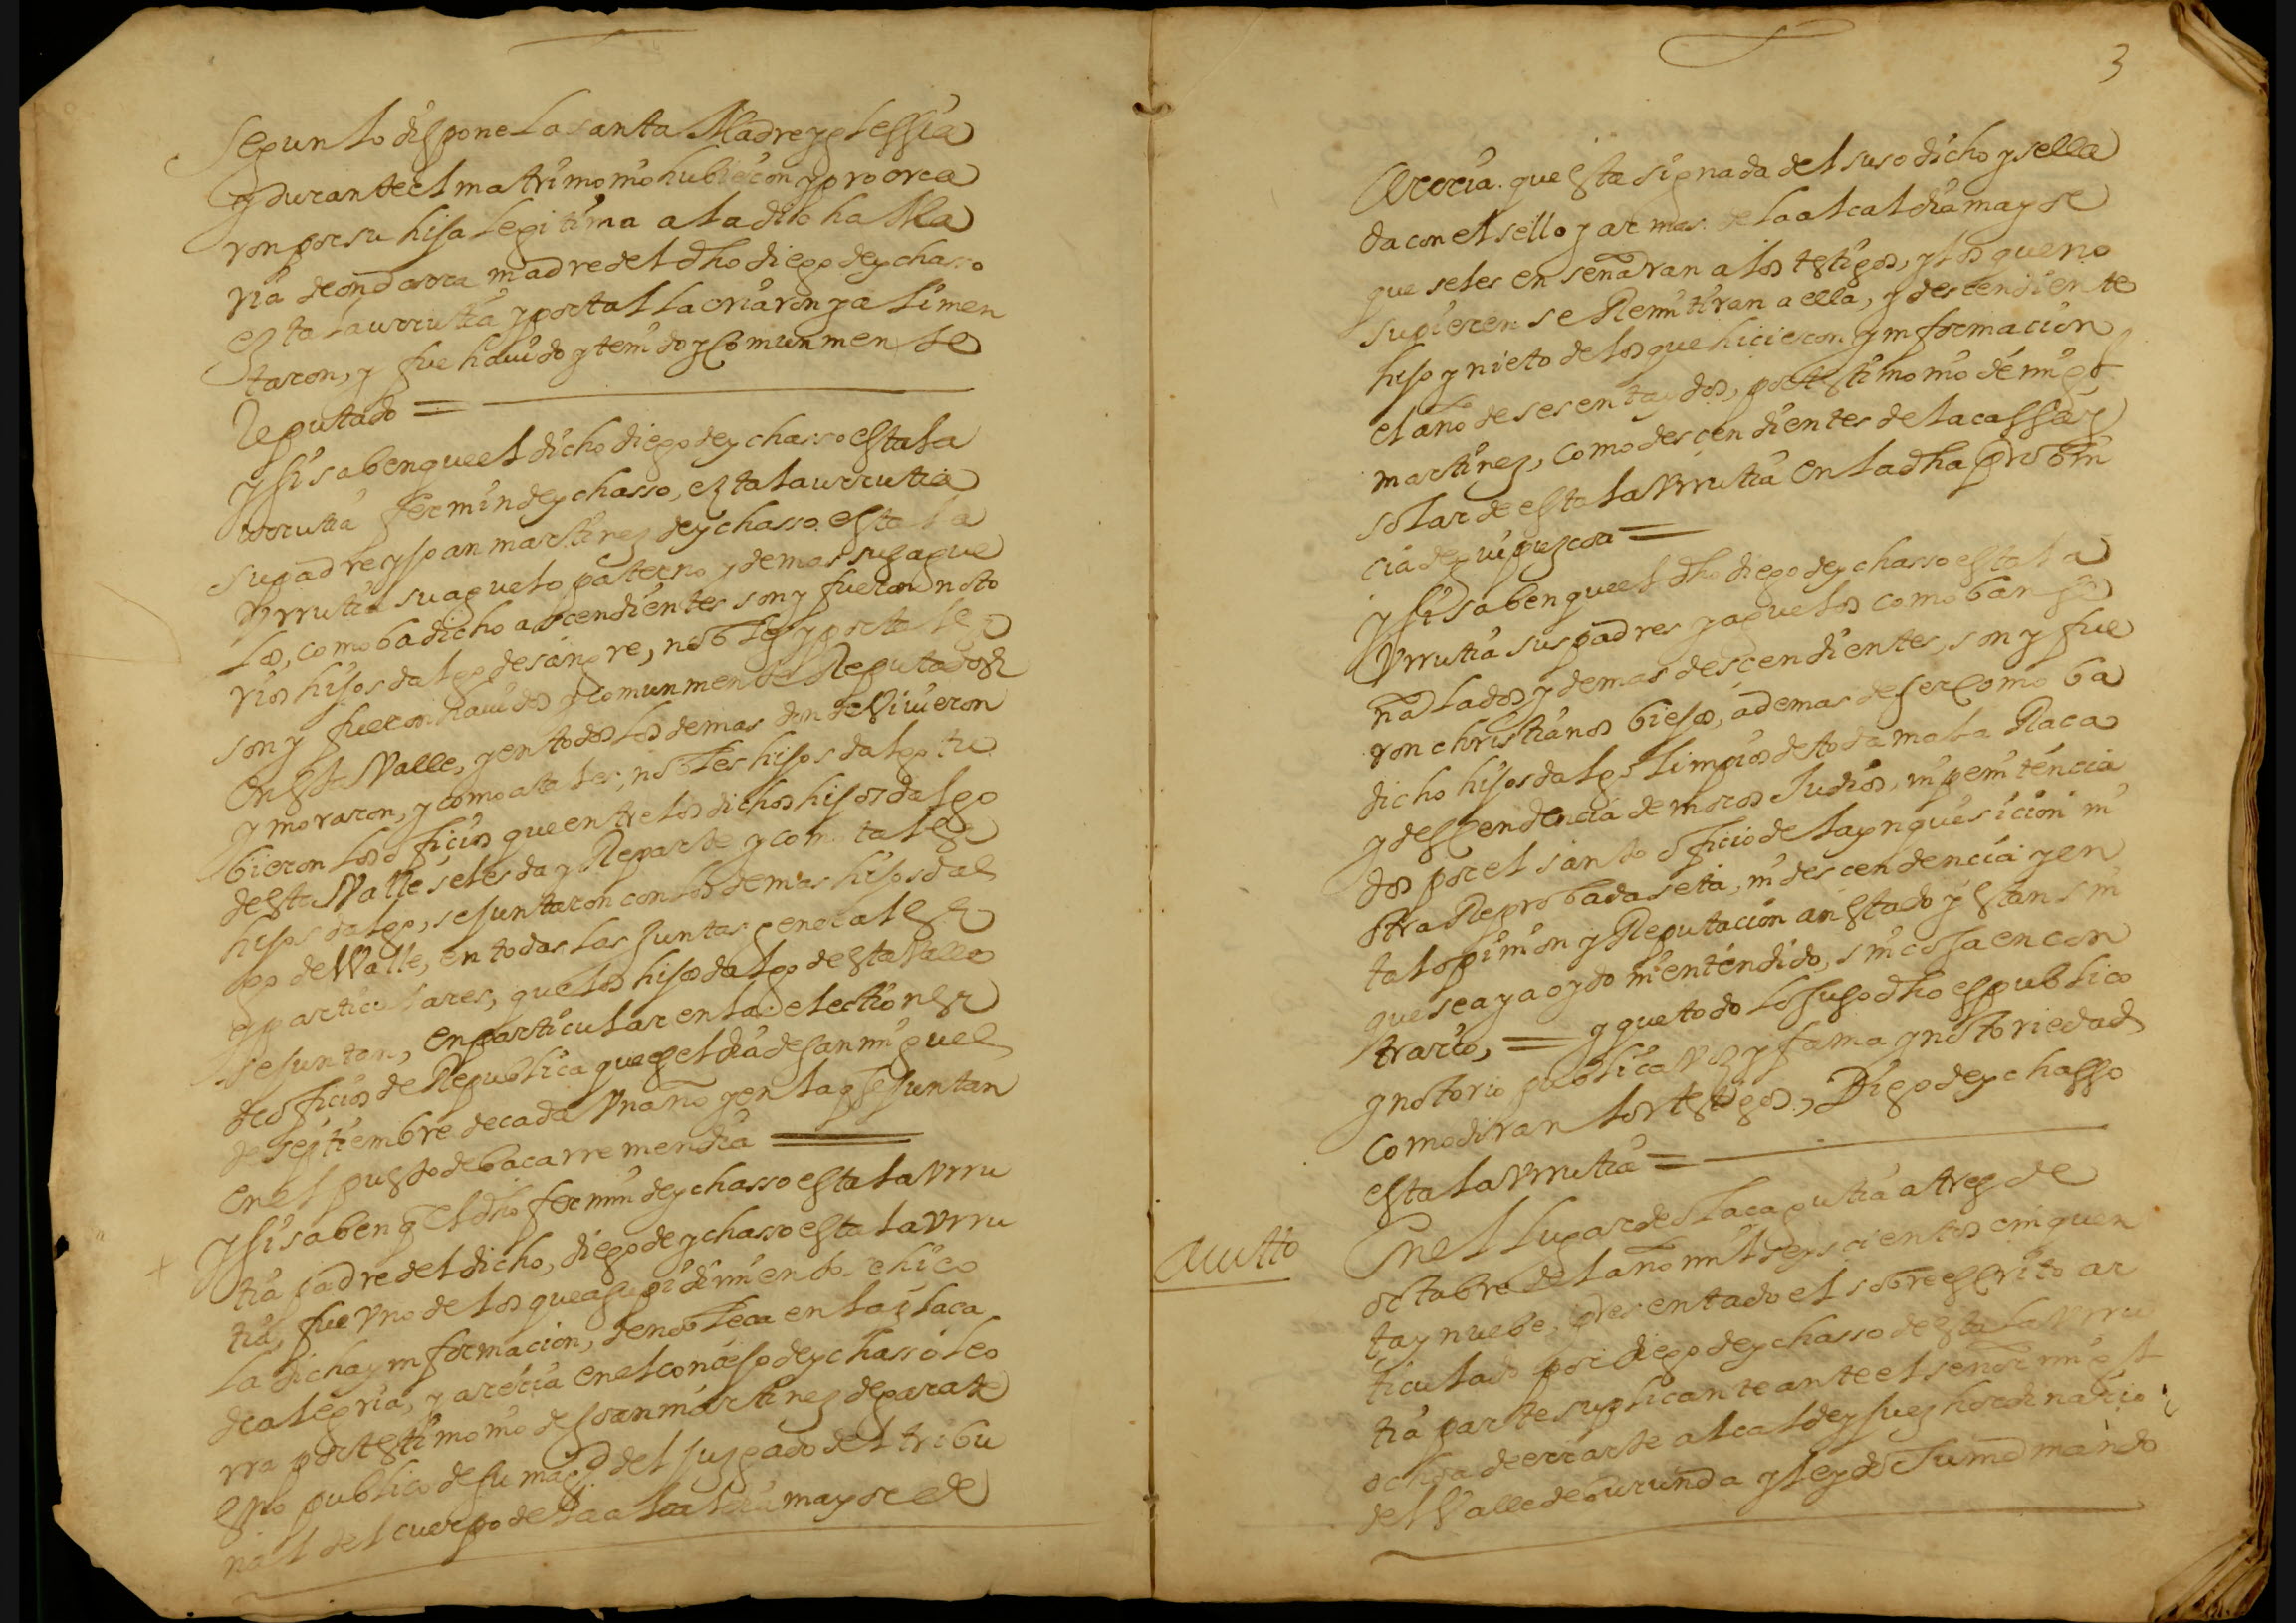 Segun lo dispone la santa Madre yglessia
y durante el matrimonio hubieron y procrea
ron por su hija legitima a la dicha Ma
ria de ondarra madre del dho diego de ychasso
ezta laurrutia y por tal la criaron y alimen
taron, y fue hauido y tenido y Comunmente
Reputado =
Y si saben que el dicho diego de ychasso estala
vrrutia fermin de ychasso, eztalaurrutia
su padre y joan martinez de ychasso estala
Vrrutia su aguelo paterno y demas sus ague
los, como ba dicho ascendientes son y fueron noto
rios hijos dalgo de sangre, nobles y por tales
son y fueron hauidos y comunmente Reputados
En esta Valle, y en todos los demas donde Viuieron
y moraron, y como a tales, nobles hijos dalgo tu
bieron los oficios que entre los dichos hijos dalgo
desta Valle se les da y Reparte y como tales
hijos dalgo, se juntaron con los demas hijos dal
go de Valle, en todas las Juntas generales
y particulares, que los hijos dalgo desta Valle
se juntan, en particular en las electiones
de oficios de Republica que es el dia de san miguel
de septiembre de cada Vn año y en la q se juntan
en el puesto de bacarremendia
Y si saben q el dho fermin de ychasso estala Vrru
tia padre del dicho, diego de ychasso estala Vrru
tia, fue Vno de los que a su pidimiento se hico
la dicha ynformacion, de nobleca en la placa
de alegria, y areria en el concejo de ychasso leo
rra por testimonio de joan martinez de parate
essno publico de su magd del juzgado del tribu
nal del cuerpo de la alcaldia mayor de
3
Areria. que esta signada del suso dicho y sella
da con el sello y armas de la alcaldia mayor
que se les enseñaran a los testigos, y los que no
supieren se Remitiran a ella, y descendiente
hijo y nieto de los que hicieron ynformacion
el año de sesenta y dos, por testimonio de migl
martinez, como descendientes de la cassa y
solar de estala Vrrutia en la dha probin
cia de guipuzcoa =
Y si saben que el dho diego de ychasso estala
Vrrutia sus padres y aguelos como ban se
ñalados y demas descendientes, son y fue
ron christianos biejos, ademas de ser Como ba
dicho hijos dalgo limpios de toda mala Raca
y descendencia de moros Judios, ni penitencia
dos por el santo oficio de la ynquisicion ni
otra Reprobada seta, ni descendencia y en
tal opinion y Reputacion an estado y estan sin
que se aya oydo ni entendido, sin cosa en con
trario, = y que todo lo suso dho es publico
y notorio publica Voz y fama y notoriedad
como diran los testigos, Diego de ychasso
estala Vrrutia =
Autto
En el lugar de olacagutia a tres de
octubre del año mil seys cientos cinquen
ta y nuebe, presentado el sobre escrito ar
ticulado por diego de ychasso de estala Vrru
tia parte suplicante ante el señor migl
ochoa de errarte alcalde y juez hordinario
del Valle de burunda y leydo su md mando